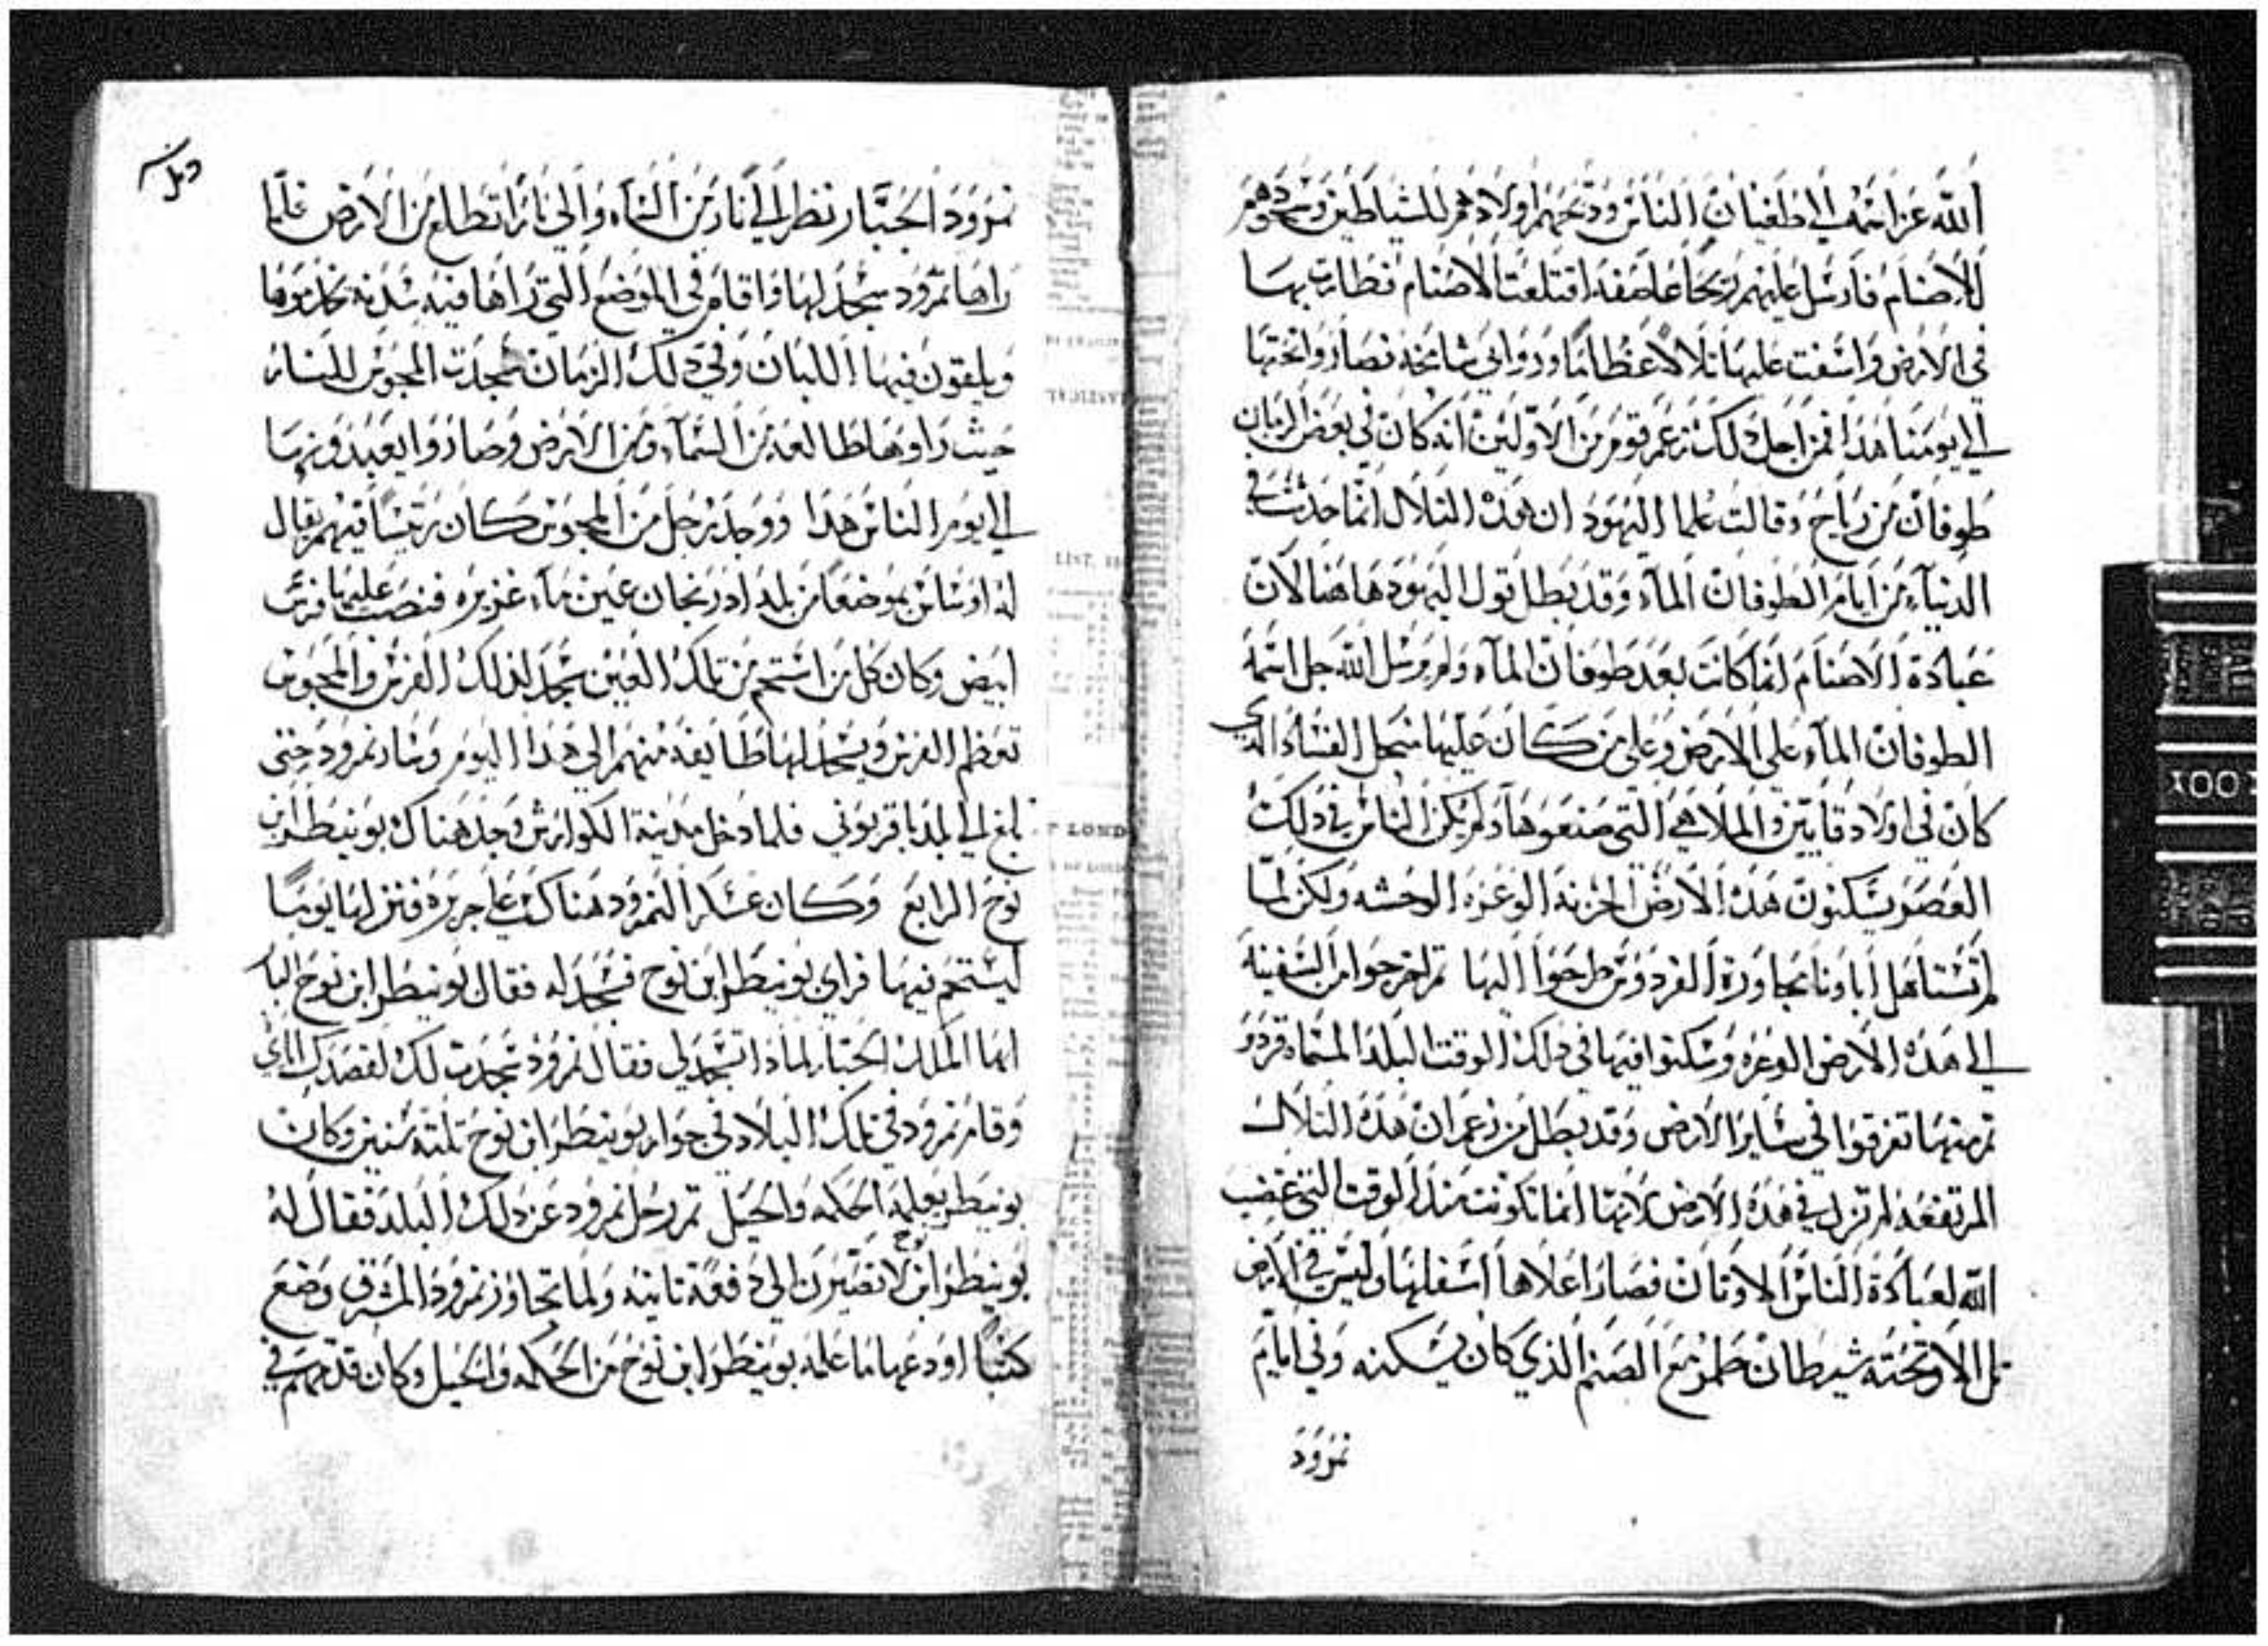 الله عز اسمه الي طغيان الناس وذبحهم اولادهم للشياطين وسجودهم
للاصنام فارسل عليهم ريحًا عاصفه اقتلعت الاصنام فطارت بها
في الارض واسفت عليها تلالاً عظامًا وروابي شامخه فصاروا تحتها
الي يومنا هذا فمن اجل ذلك زعم قوم من الاولين انه كان في بعض الزمان
طوفان من رياح وقالت علما اليهود ان هذه التلال انما حدثت في
الدنيا من ايام الطوفان الماء وقد بطل قول اليهود هاهنا لان
عبادة الاصنام انما كانت بعد طوفان الماء ولم يرسل الله جل اسمه
الطوفان الماء علي الارض وعلي من كان عليها من اجل الفساد الذي
كان في اولاد قايين والملاهي التي صنعوها ولم يكن الناس في ذلك
العصر يسكنون هذه الارض الحزنه الوعره الوحشه ولكن لما
لم تستاهل اباونا مجاورة الفردوس طرحوا اليها ثم اخرجوا من السفينه
الي هذه الارض الوعره وسكنوا فيها في ذلك الوقت البلد المسماه قردو
ثم منها تفرقوا في سائر الارض وقد بطل من زعم ان هذه التلال
المرتفعه لم تزل في هذه الارض لانها انما تكونت منذ الوقت التي غضب
الله لعبادة الناس الاوثان فصار اعلاها اسفلها وليس في الارض
تل الا وتحته شيطان طمر مع الصنم الذي كان يسكنه وفي ايام
نمرود
نمرود الجبار نظر الي نار من السماء والي نارا تطلع من الارض فلما
راها نمرود سجد لها واقام في الموضع التي راها فيه سدنه يخدموها
ويلقون فيها اللبان وفي ذلك الزمان سجدت المجوس للنار
حيث راوها طالعه من السماء ومن الارض وصاروا يعبدونها
الي يوم الناس هذا ووجد رجل من المجوس كان رئيسًا فيهم يقال
له اوساس بموضعًا من بلد ادربيجان عين ماء غزيره فنصب عليها فرس
ابيض وكان كل من استحم من تلك العين سجد لذلك الفرس والمجوس
تعظم الفرس ويسجد لها طايفه منهم الي هذا اليوم وسار نمرود حتى
بلغ الي بلد باقريوني فلما دخل مدينة الكوارش وجد هناك بونيطر ابن
نوح الرابع وكان عسكر النمرود هناك علي جزيره فنزل يومًا
ليستحم فيها فراي بونيطر ابن نوح فسجد له فقال بونيطر ابن نوح
ايها الملك الجبار لماذا تسجد لي فقال نمرود سجدت لك لقصدك اياي
وقام نمرود في تلك البلاد في جوار بونيطر ابن نوح ثلثه سنين وكان
بونيطر يعلمه الحكمه والحيل ثم رحل نمرود عن ذلك البلد فقال له
بونيطر ابن نوح لا تصيرن الي دفعة ثانيه ولما تجاوز نمرود المشرق وضع
كتبًا اودعها ما علمه بونيطر ابن نوح من الحكمه والحيل وكان قد